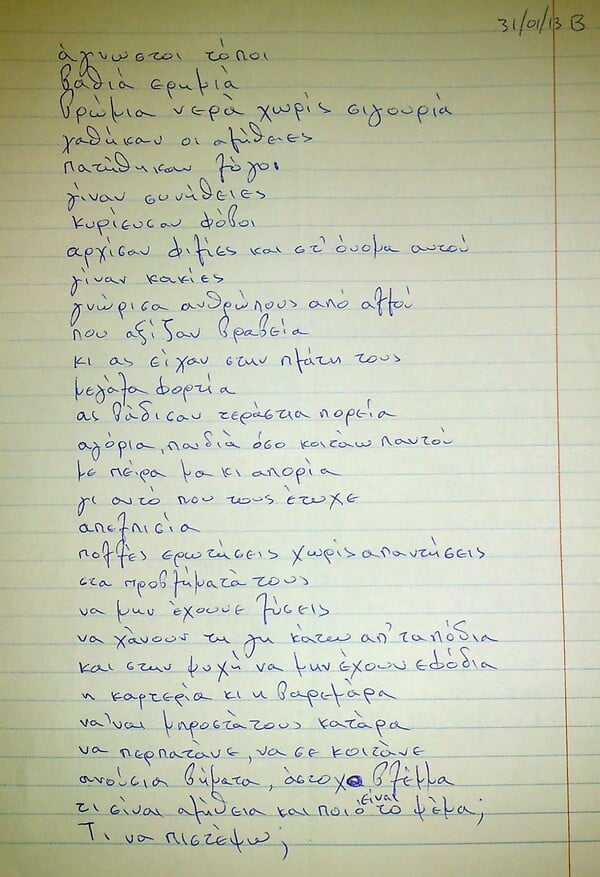 31/01/13 Β
άγνωστοι τόποι
βαθιά ερημιά
βρώμια νερά χωρίς σιγουριά
χαθήκαν οι αλήθειες
πατήθηκαν λόγοι
γίναν συνήθειες
κυρίευσαν φόβοι
αρχίσαν φιλίες και στ' όνομα αυτού
γίναν κακίες
γνώρισα ανθρώπους από αλλού
που αξίζαν βραβεία
κι ας είχαν στην πλάτη τους
μεγάλα φορτία
ας βάδισαν τεράστια πορεία
αγόρια, παιδιά όσο κοιτάω παντού
με πείρα μα κι απορία
γι αυτό που τους έτυχε
απελπισία
πολλές ερωτήσεις χωρίς απαντήσεις
στα προβλήματά τους
να μην έχουνε λύσεις
να χάνουν τη γη κάτω απ' τα πόδια
και στην ψυχή να μην έχουν εφόδια
η καρτερία κι η βαρεμάρα
να'ναι μπροστά τους κατάρα
να περπατάνε, να σε κοιτάνε
ανούσια βήματα, άστοχο βλέμμα
τι είναι αλήθεια και ποιο είναι το ψέμα;
Τι να πιστέψω;